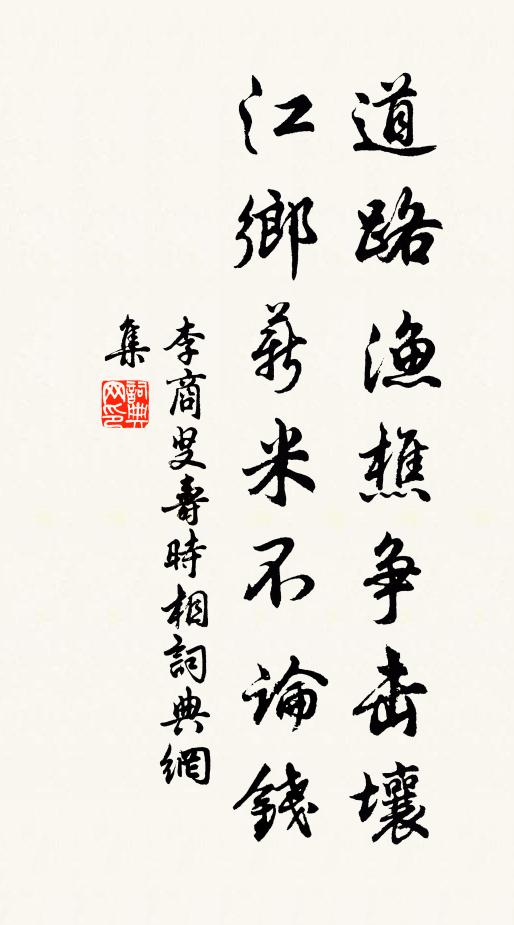 道路漁樵争击壤
江鄉薪米不論錢
李商叟壽時相詞典網
集
詞典
网印